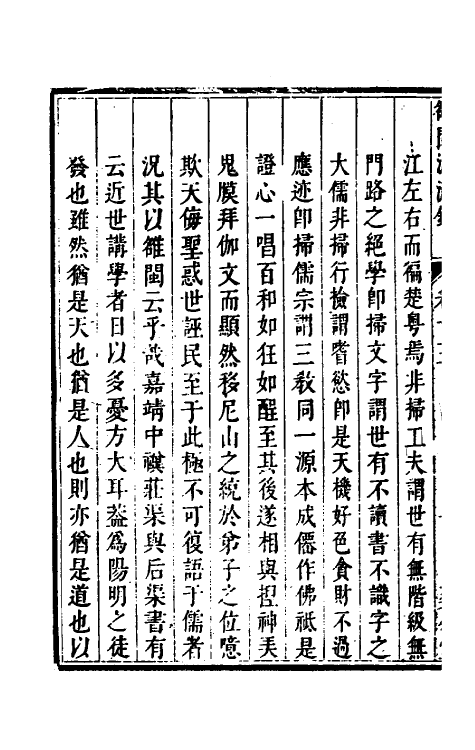 江左右而徧楚粤焉非掃工夫謂世有無階級無
門路之絕學卽掃文字謂世有不讀書不識字之
大儒非掃行檢謂嗜慾卽是天機好色貪財不過
應迹卽掃儒宗謂三敎同一源本成僊作佛祗是
證心一唱百和如狂如醒至其後遂相與捏神美
鬼膜拜伽文而顯然移尼山之統於弟子之位噫
欺天侮聖惑世誣民至于此極不可復語于儒者
況其以雒閩云乎哉嘉靖中魏莊渠與后渠書有
云近世講學者日以多憂方大耳葢爲陽明之徒
發也雖然猶是天也猶是人也則亦猶是道也以